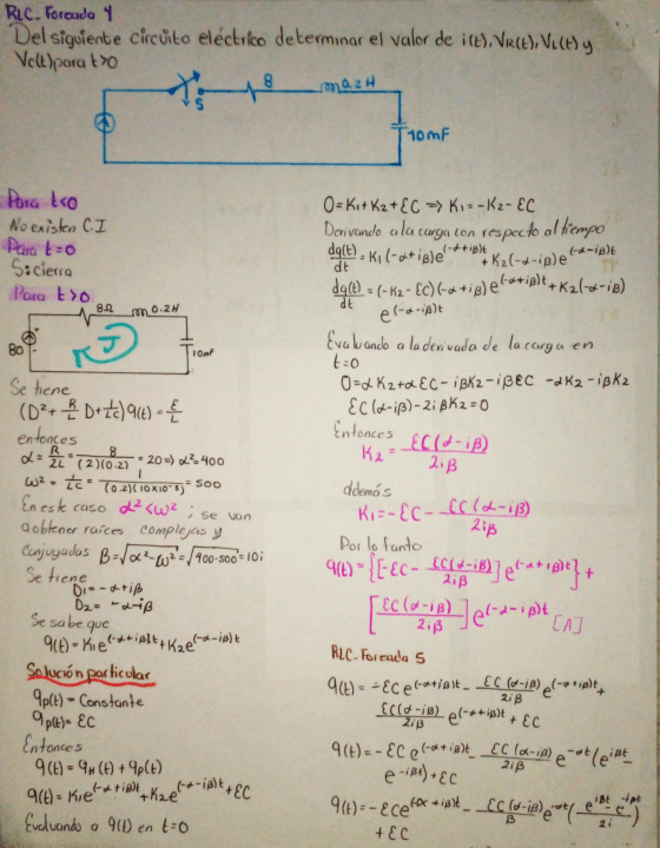 RLC-Forzada 4
Del siguiente circuito eléctrico determinar el valor de i(t), VR(t), VL(t) y
Vc(t) para t>0
S
8
0.2H
10mF
Para t<0
No existen C.I
Para t=0
S: cierra
Para t>0
8Ω
0.2H
80
J
10mF
Se tiene
(D²+ R/L D+ 1/LC) q(t) = ε/L
entonces
α = R/2L = 8/(2)(0.2) = 20 => α²=400
ω² = 1/LC = 1/(0.2)(10x10⁻³) = 500
En este caso α²<ω² ; se van
a obtener raíces complejas y
conjugadas β=√α²-ω² = √400-500 = 10i
Se tiene
D1= -α+iβ
D2= -α-iβ
Se sabe que
q(t)= K1e^(-α+iβ)t + K2e^(-α-iβ)t
Solución particular
qp(t) = Constante
qp(t)= εC
Entonces
q(t) = qH(t) + qp(t)
q(t)= K1e^(-α+iβ)t + K2e^(-α-iβ)t + εC
Evaluando a q(t) en t=0
0=K1+K2+εC => K1=-K2-εC
Derivando a la carga con respecto al tiempo
dq(t)/dt = K1(-α+iβ)e^(-α+iβ)t + K2(-α-iβ)e^(-α-iβ)t
dq(t)/dt = (-K2-εC)(-α+iβ)e^(-α+iβ)t + K2(-α-iβ)
e^(-α-iβ)t
Evaluando a la derivada de la carga en
t=0
0=αK2+αεC-iβK2-iβεC -αK2-iβK2
εC(α-iβ)-2iβK2=0
Entonces
K2 = εC(α-iβ)/2iβ
además
K1=-εC - εC(α-iβ)/2iβ
Por lo tanto
q(t)= {[-εC - εC(α-iβ)/2iβ] e^(-α+iβ)t} +
[εC(α-iβ)/2iβ] e^(-α-iβ)t [A]
RLC-Forzada 5
q(t)= -εC e^(-α+iβ)t - εC(α-iβ)/2iβ e^(-α+iβ)t +
εC(α-iβ)/2iβ e^(-α+iβ)t + εC
q(t)= -εC e^(-α+iβ)t - εC(α-iβ)/2iβ e^-αt (e^iβt -
e^-iβt) + εC
q(t)= -εCe^(-α+iβ)t - εC(α-iβ)/β e^-αt (e^iβt - e^-iβt / 2i)
+ εC